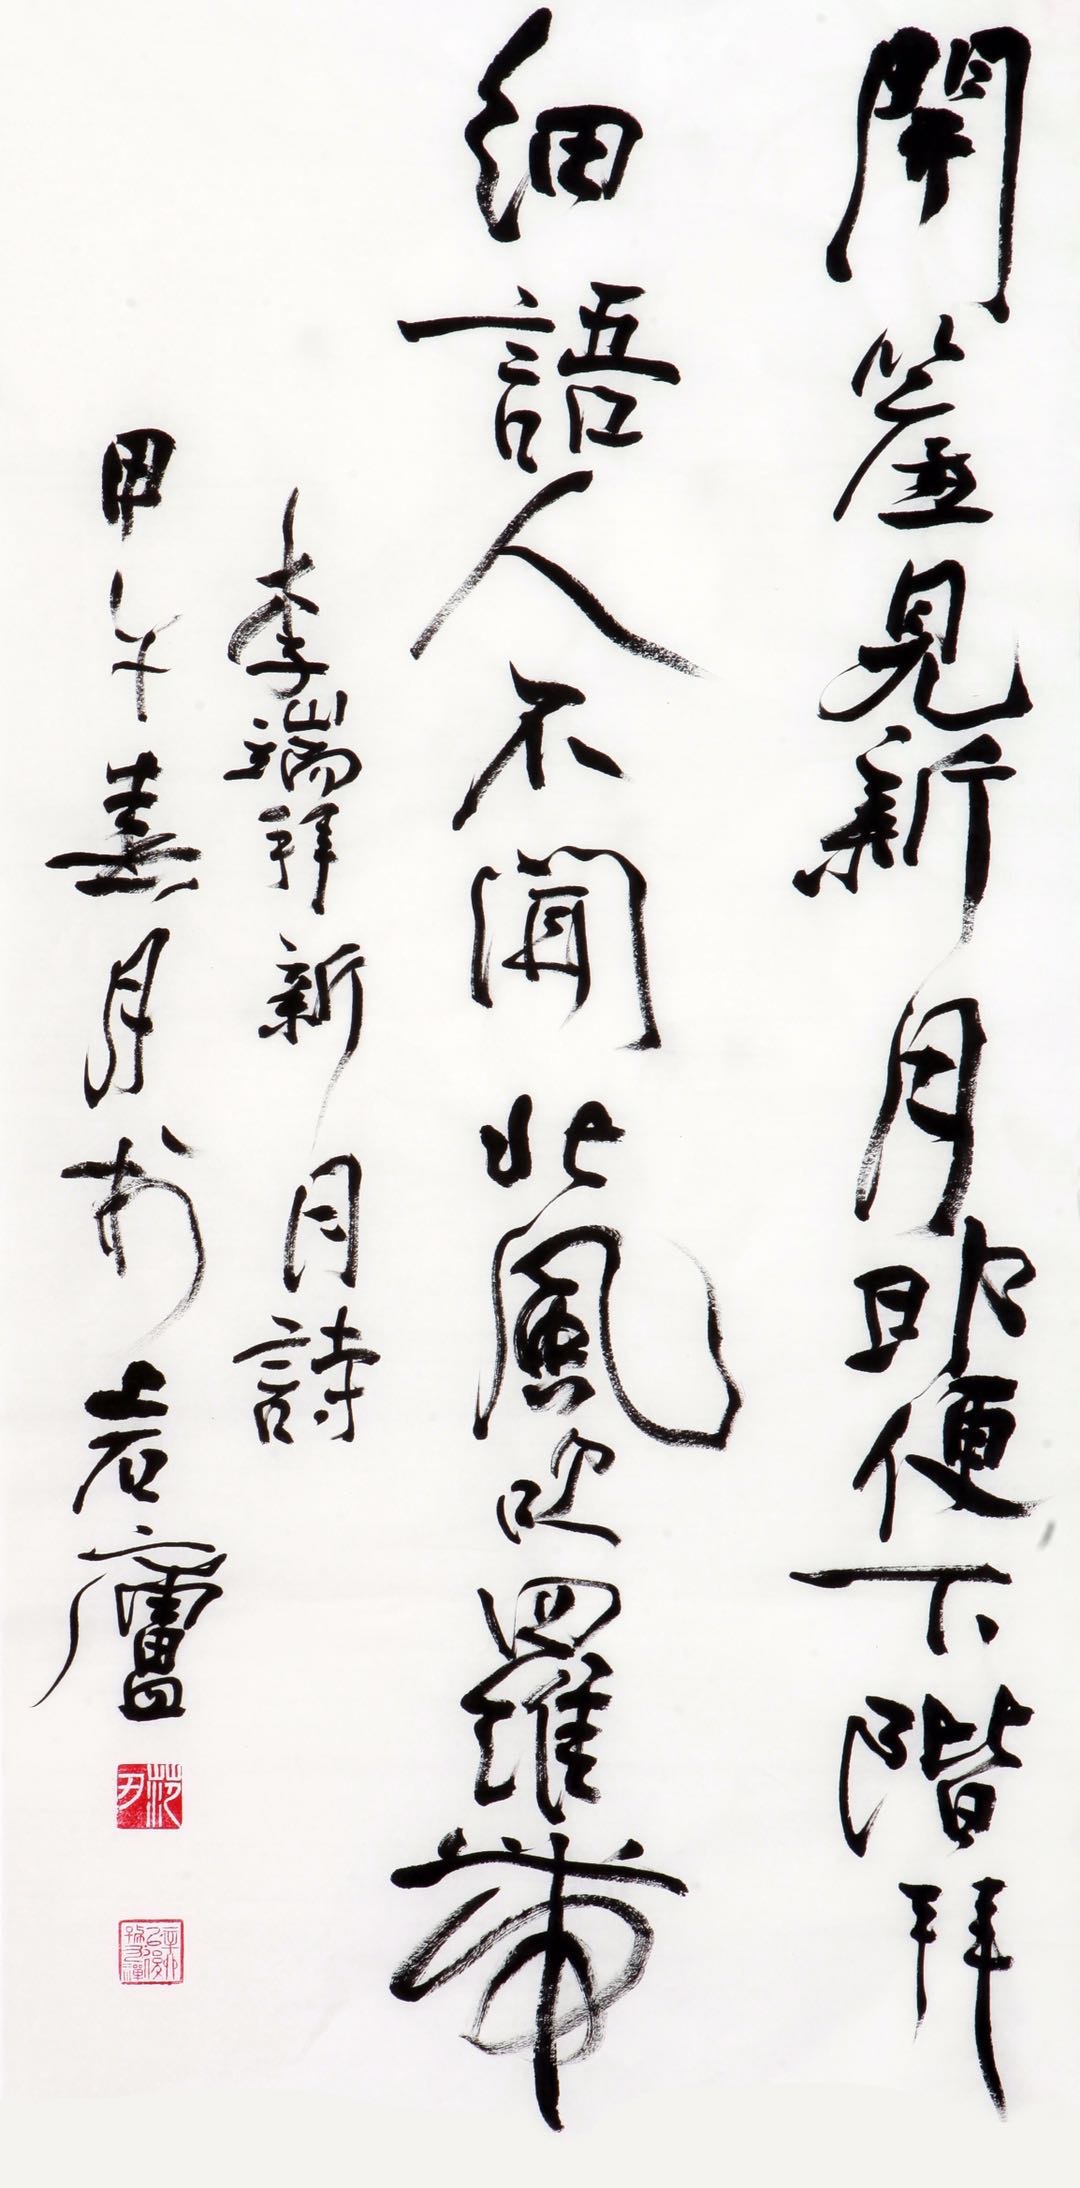 開簾見新月即便下階拜
細語人不聞北風吹羅帶
李端拜新月詩
甲午春月於廬